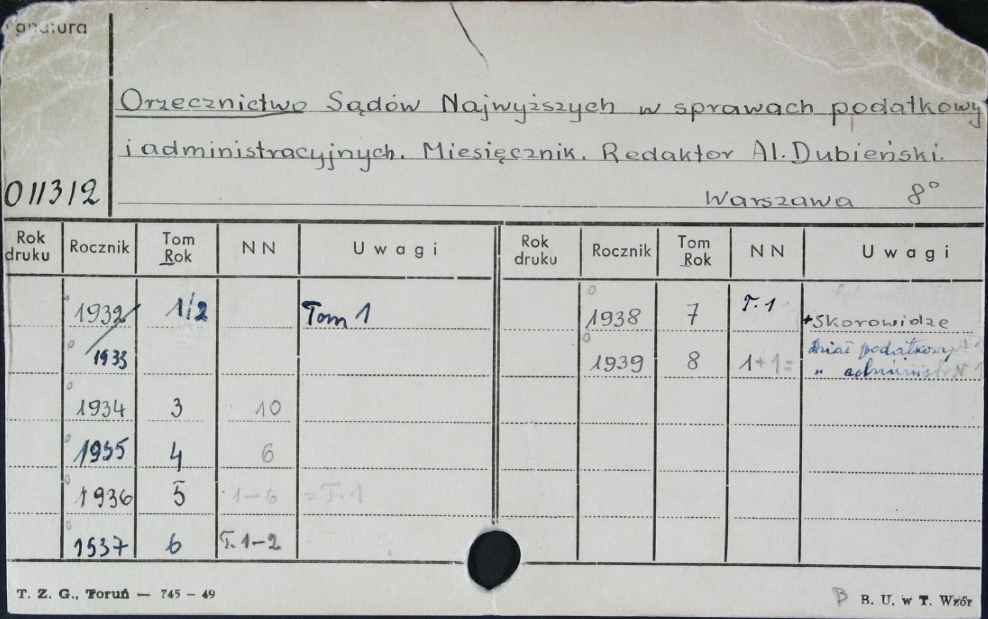 Sygnatura
Orzecznictwo Sądów Najwyższych w sprawach podatkowy
i administracyjnych. Miesięcznik. Redaktor Al. Dubieński.
011312 Warszawa 8°
Rok druku Rocznik Tom Rok NN Uwagi Rok druku Rocznik Tom Rok NN Uwagi
1932/ 1/2 Tom 1 1938 7 T. 1 +Skorowidze
1933 1939 8 1+1= dział podatkowy
" administr. N 1
1934 3 10
1935 4 6
1936 5 1-6 =T.1
1937 6 T. 1-2
T. Z. G., Toruń — 745 - 49 B B. U. w T. Wzór